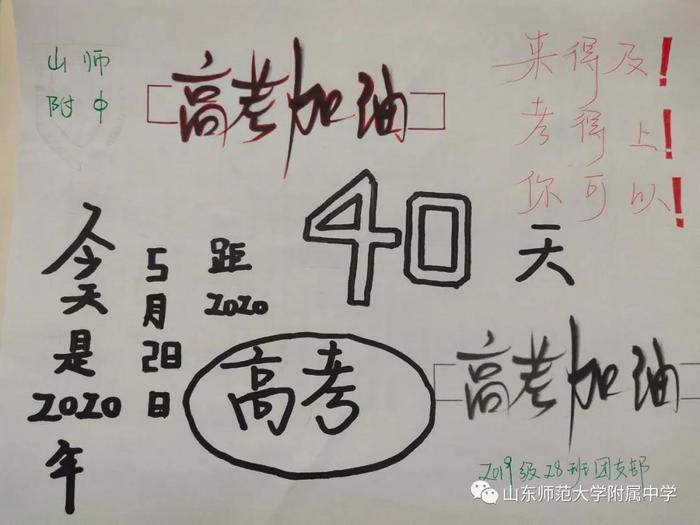 山师
附中
高考加油
来得及!
考得上!
你可以!
今天是2020年
5月28日
距
2020
高考
40天
高考加油
2019级28班团支部
山东师范大学附属中学